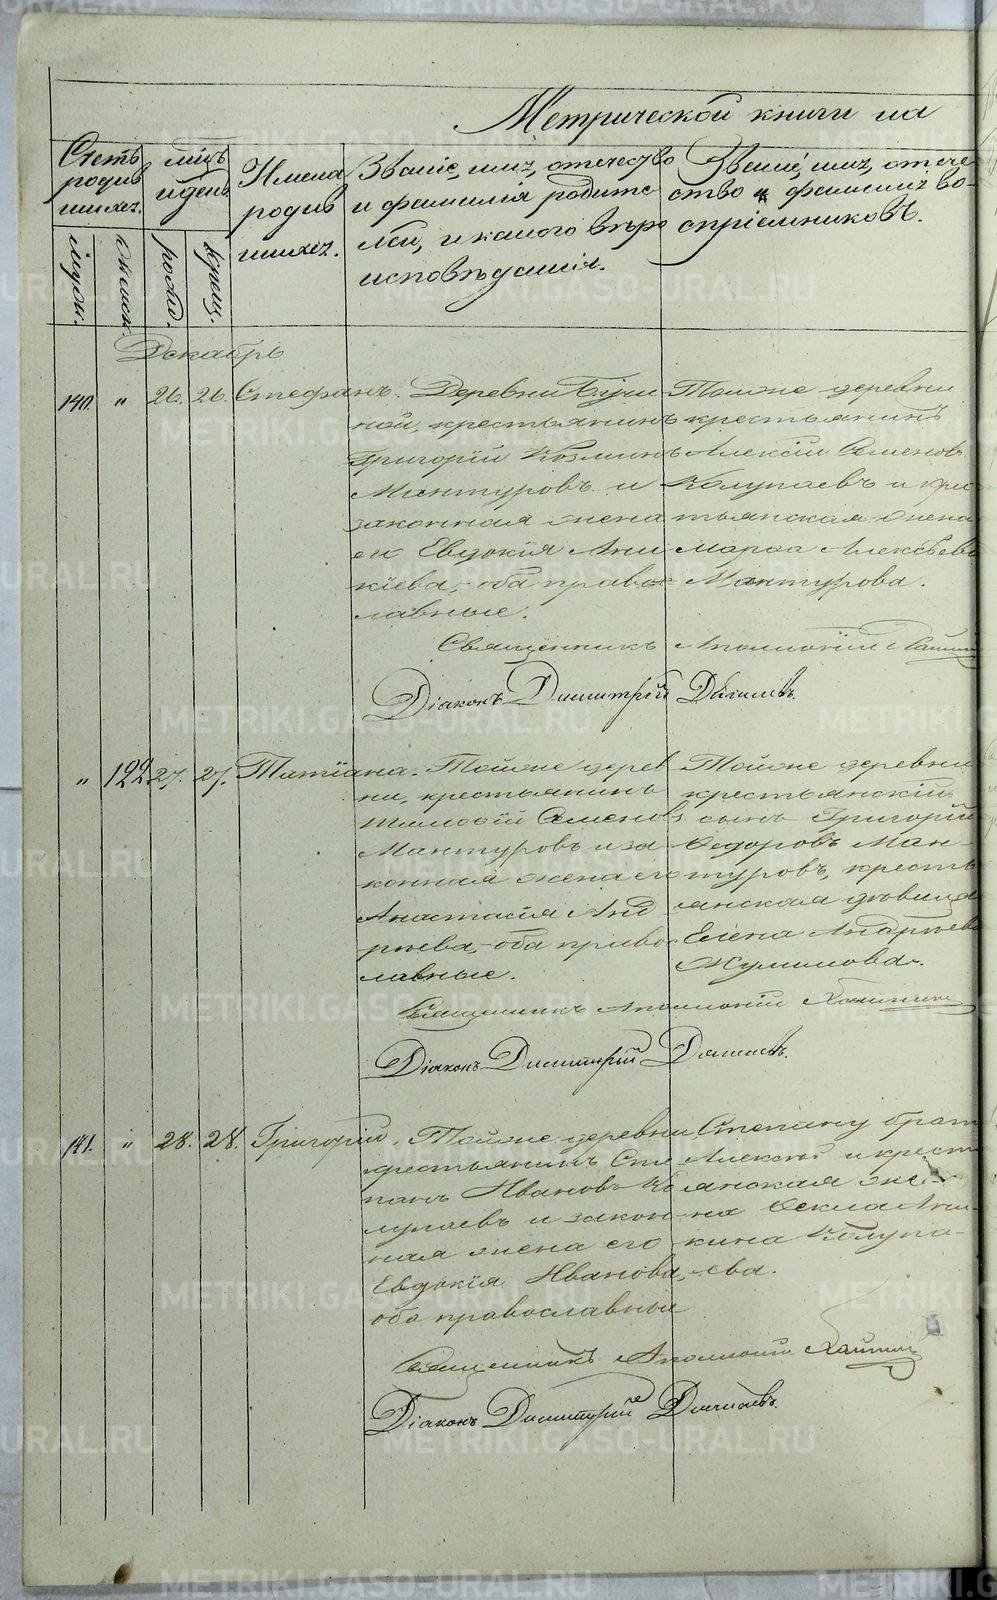 Метрической книги на
Счетъ родив шихся.
мужск.
женск.
мѣсяцъ и день
рожд.
крещ.
Имена родив шихся.
Званіе, имя, отчество
и фамилія родите
лей, и какого вѣро
исповѣданія.
Званіе, имя, отче
ство и фамилія во
спріемниковъ.
Декабрь
140. " 26. 26. Стефанъ.
Деревни
ной, крестьянинъ
Григорій Козминъ
Мантуровъ и
законная жена
его Евдокія Ани
кіева, оба правос
лавные.
Тойже деревни
крестьянинъ
Алексій Семеновъ
Колупаевъ и кре
тьянская жена
Марѳа Алексѣева
Мантурова.
Священникъ Аполлоній
Діаконъ Димитрій
" 122. 27. 27. Татіана.
Тойже дерев
ни, крестьянинъ
Тимоѳій Семеновъ
Мантуровъ и за
конная жена его
Анастасія Анд
рѣева, оба правос
лавные.
Тойже деревни
крестьянскій
сынъ Григорій
Ѳедоровъ Ман-
туровъ, кресть
янская дѣвица
Елена Андрѣева
Священникъ Аполлоній
Діаконъ Димитрій
141. " 28. 28. Григорій.
Тойже деревни
крестьянинъ Сте
панъ Ивановъ Ко
лупаевъ и закон
ная жена его
Евдокія Иванова,
оба православные
Степану брат
Алексѣй и крест
янская же-
на Ѳекла Ани-
кина Колупа-
ева.
Священникъ Аполлоній
Діаконъ Димитрій
METRIKI.GASO-URAL.RU